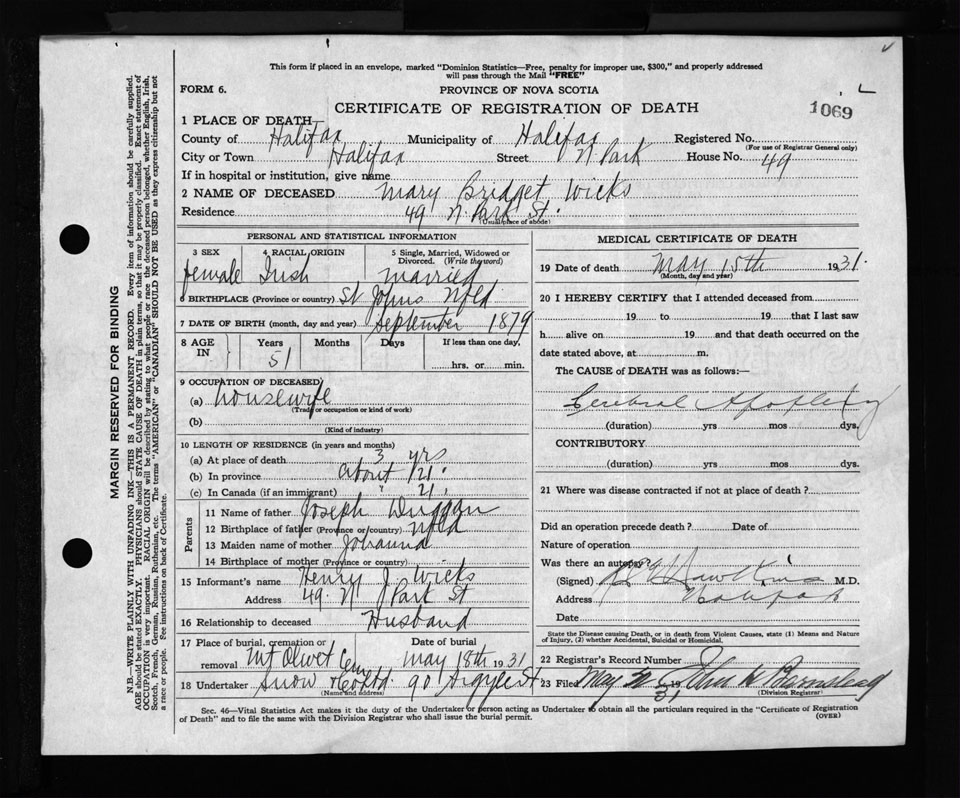 This form if placed in an envelope, marked "Dominion Statistics—Free, penalty for improper use, $300," and properly addressed
will pass through the Mail "FREE"
FORM 6.
PROVINCE OF NOVA SCOTIA
CERTIFICATE OF REGISTRATION OF DEATH
1069
1 PLACE OF DEATH
County of Halifax Municipality of Halifax Registered No.
(For use of Registrar General only)
City or Town Halifax Street N Park House No. 49
If in hospital or institution, give name
2 NAME OF DECEASED Mary Bridget Wicks
Residence 49 N. Park St.
(Usual place of abode)
PERSONAL AND STATISTICAL INFORMATION
3 SEX 4 RACIAL ORIGIN 5 Single, Married, Widowed or
Divorced. (Write the word)
female Irish married
6 BIRTHPLACE (Province or country) St Johns Nfld
7 DATE OF BIRTH (month, day and year) September 1879
8 AGE IN Years Months Days If less than one day,
51 hrs. or min.
9 OCCUPATION OF DECEASED
(a) housewife
(Trade or occupation or kind of work)
(b)
(Kind of industry)
10 LENGTH OF RESIDENCE (in years and months)
(a) At place of death 3 yrs
(b) In province about 21 "
(c) In Canada (if an immigrant) " 21 "
Parents
11 Name of father Joseph Duggan
12 Birthplace of father (Province or country) Nfld
13 Maiden name of mother Johanna
14 Birthplace of mother (Province or country)
15 Informant's name Henry J Wicks
Address 49 N Park St
16 Relationship to deceased Husband
17 Place of burial, cremation or removal Mt Olivet Cem Date of burial May 18th 1931
18 Undertaker Snow & Co Ltd. 90 Argyle St
(Name and address)
MEDICAL CERTIFICATE OF DEATH
19 Date of death May 15th 1931.
(Month, day and year)
20 I HEREBY CERTIFY that I attended deceased from
19 to 19 that I last saw
h alive on 19 and that death occurred on the
date stated above, at m.
The CAUSE of DEATH was as follows:—
Cerebral Apoplexy
(duration) yrs mos dys.
CONTRIBUTORY
(duration) yrs mos dys.
21 Where was disease contracted if not at place of death?
Did an operation precede death? Date of
Nature of operation
Was there an autopsy?
(Signed) Hawkins M.D.
Address Halifax
Date
State the Disease causing Death, or in death from Violent Causes, state (1) Means and Nature
of Injury, (2) whether Accidental, Suicidal or Homicidal.
22 Registrar's Record Number
23 Filed May 19 31 John W Barnstead
(Division Registrar)
Sec. 46—Vital Statistics Act makes it the duty of the Undertaker or person acting as Undertaker to obtain all the particulars required in the "Certificate of Registration
of Death" and to file the same with the Division Registrar who shall issue the burial permit.
(OVER)
MARGIN RESERVED FOR BINDING
N.B.—WRITE PLAINLY WITH UNFADING INK—THIS IS A PERMANENT RECORD. Every item of information should be carefully supplied.
AGE should be stated EXACTLY. PHYSICIANS should STATE CAUSE OF DEATH in plain terms, so that it may be properly classified. Exact statement of
OCCUPATION is very important. RACIAL ORIGIN will be described by stating to what people or race the deceased person belonged, whether English, Irish,
Scotch, French, German, Russian, Ruthenian, etc. The terms "AMERICAN" or "CANADIAN" SHOULD NOT BE USED as they express citizenship but not
a race or people. See instructions on back of Certificate.